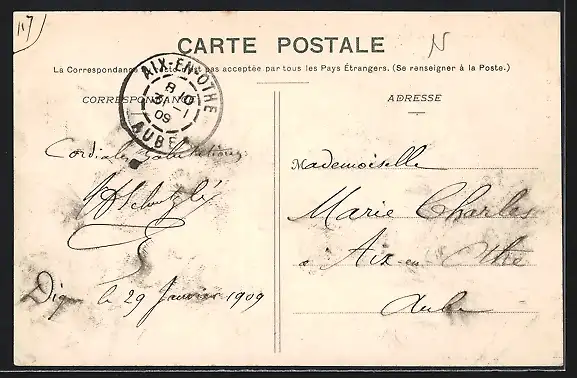 117
N
CARTE POSTALE
La Correspondance au recto n'est pas acceptée par tous les Pays Étrangers. (Se renseigner à la Poste.)
CORRESPONDANCE
ADRESSE
AIX-EN-OTHE
8
1
09
AUBE
Cordiales Salutations
Mademoiselle
Marie Charles
à Aix en Othe
Aube
le 29 Janvier 1909